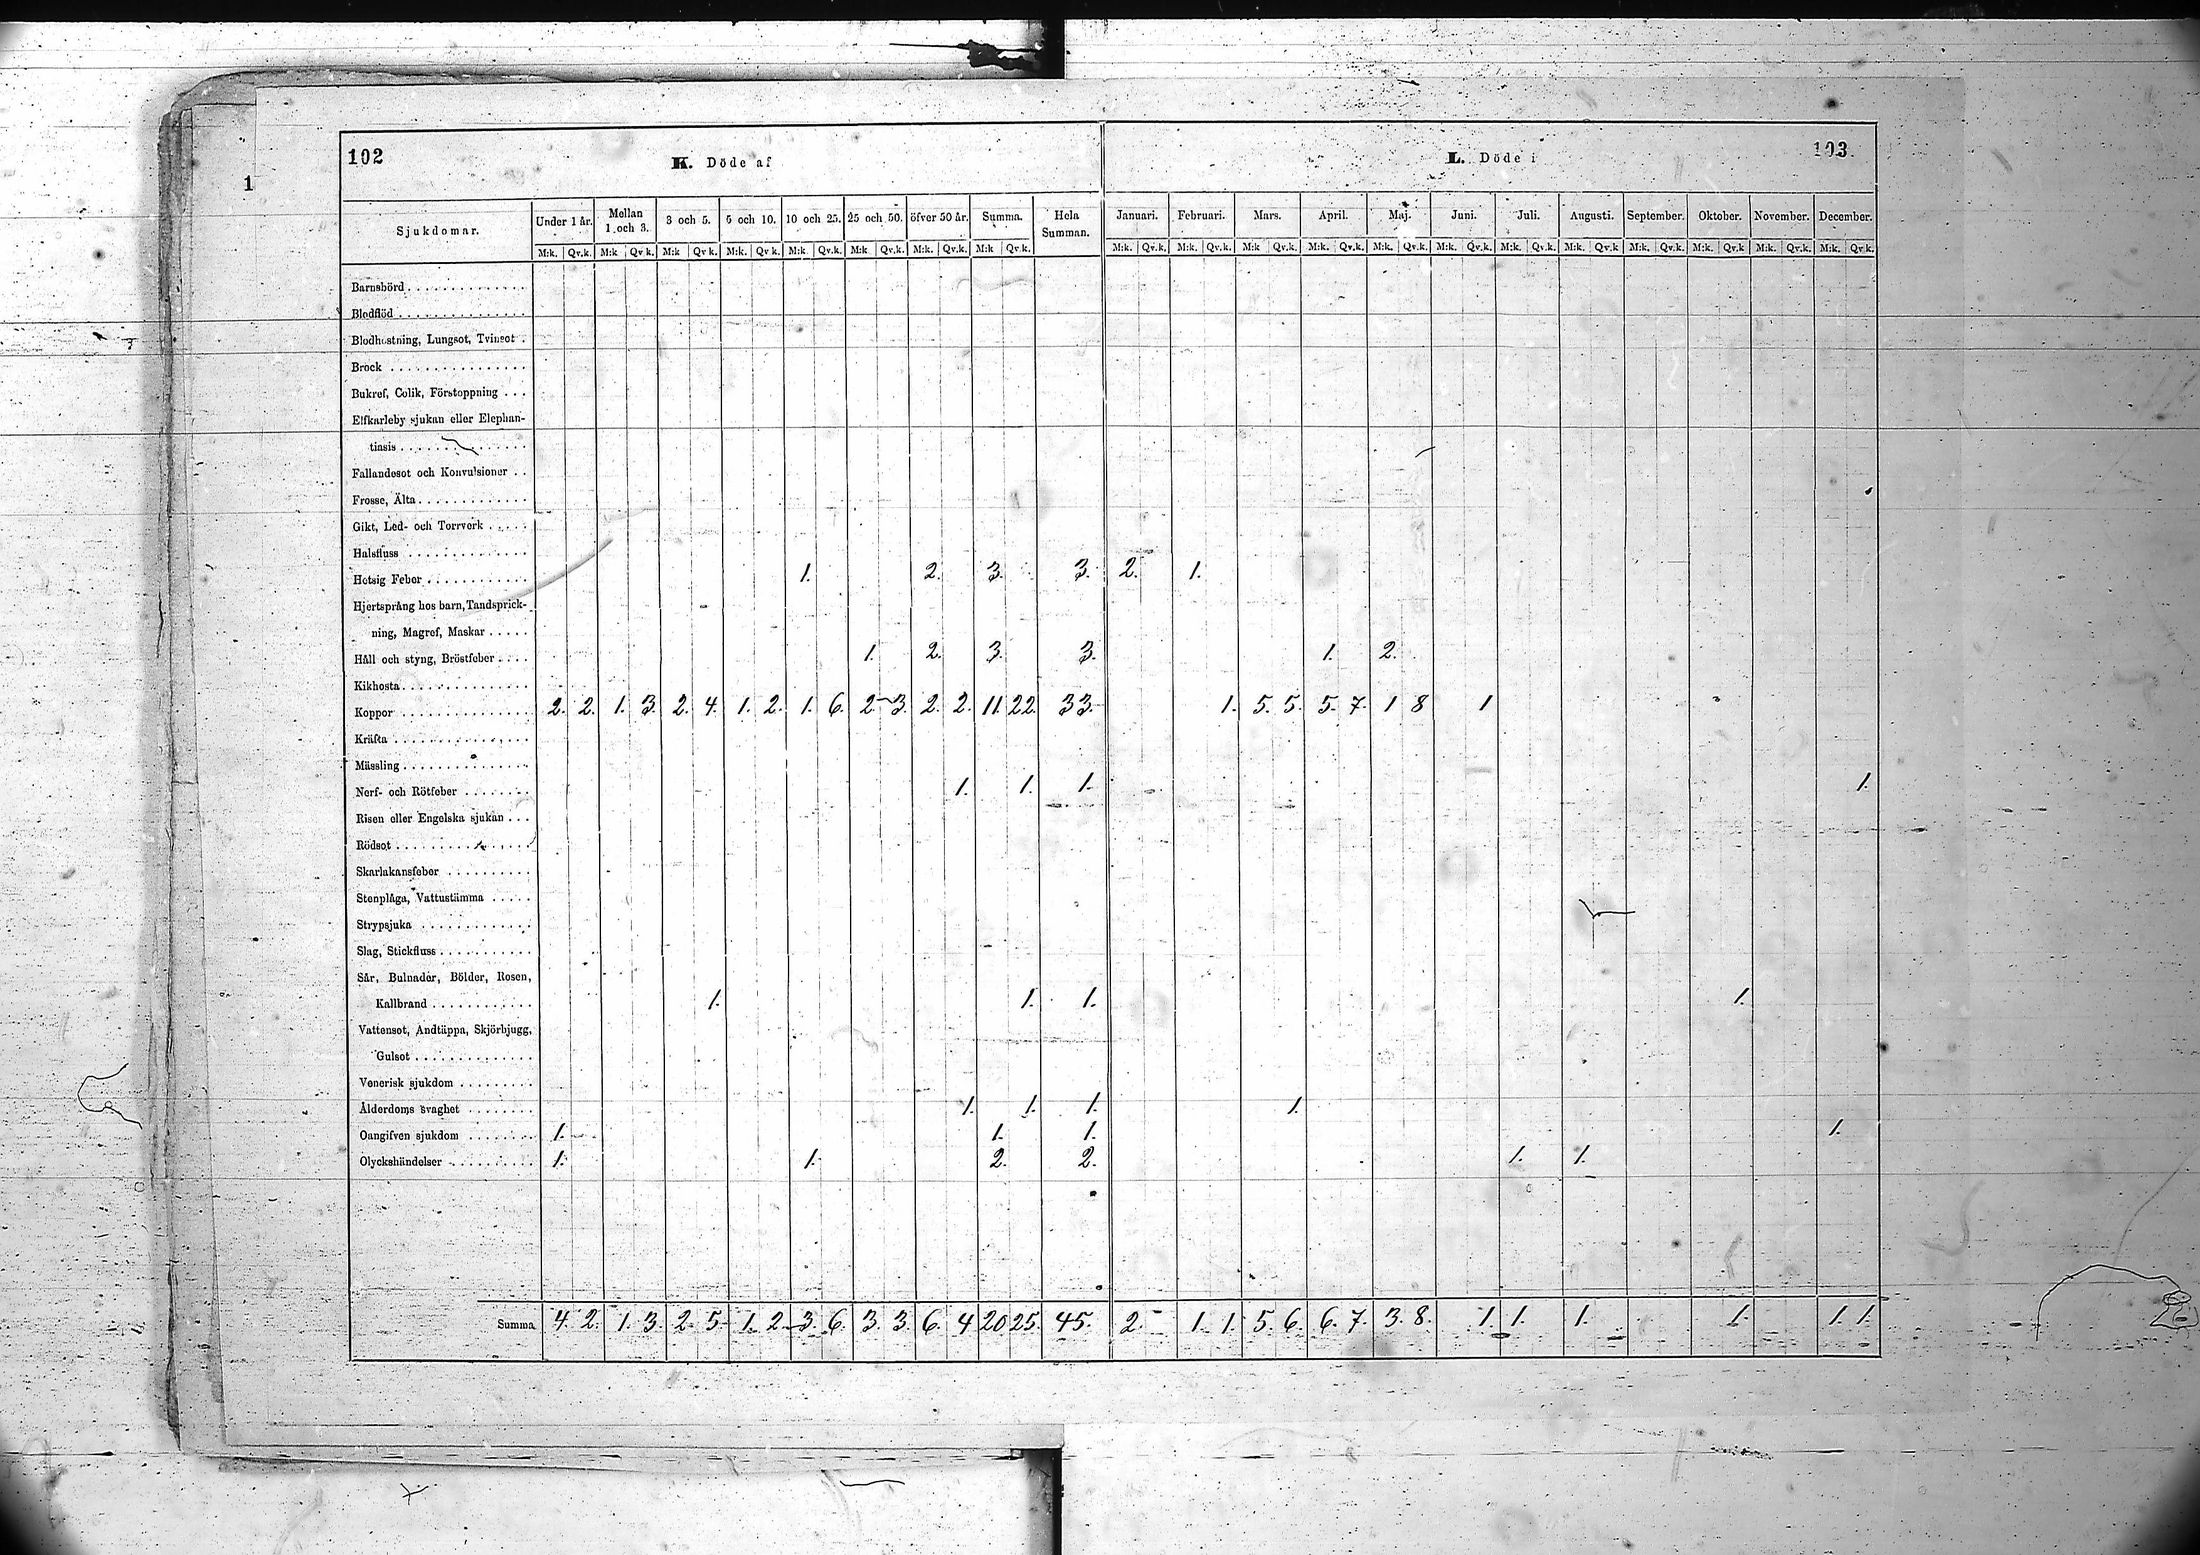 102 K. Döde af L. Döde i 103.
1
Sjukdomar. Under 1 år. Mellan 1 och 3. 3 och 5. 5 och 10. 10 och 25. 25 och 50. öfver 50 år. Summa. Hela Summan. Januari. Februari. Mars. April. Maj. Juni. Juli. Augusti. September. Oktober. November. December.
M:k. Qv.k. M:k Qv k. M:k Qv k. M:k. Qv k. M:k. Qv.k. M:k Qv.k. M:k. Qv.k. M:k Qv.k. M:k. Qv.k. M:k. Qv.k. M:k Qv.k. M:k. Qv.k. M:k. Qv.k. M:k. Qv.k. M:k. Qv.k. M:k. Qv.k M:k. Qv.k. M:k. Qv.k M:k. Qv.k. M:k. Qv.k.
Barnsbörd
Blodflöd
Blodhostning, Lungsot, Tvinsot
Brock
Bukref, Colik, Förstoppning
Elfkarleby sjukan eller Elephan-
tiasis
Fallandesot och Konvulsioner
Frosse, Älta
Gikt, Led- och Torrverk
Halsfluss
Hetsig Feber 1. 2. 3. 3. 2. 1.
Hjertsprång hos barn, Tandsprick-
ning, Magref, Maskar
Håll och styng, Bröstfeber 1. 2. 3. 3. 1. 2.
Kikhosta
Koppor 2. 2. 1. 3. 2. 4. 1. 2. 1. 6. 2 3. 2. 2. 11. 22. 33. 1. 5. 5. 5. 7. 1 8 1
Kräfta
Mässling
Nerf- och Rötfeber 1. 1. 1. 1.
Risen eller Engelska sjukan
Rödsot
Skarlakansfeber
Stenplåga, Vattustämma
Strypsjuka
Slag, Stickfluss
Sår, Bulnader, Bölder, Rosen,
Kallbrand 1. 1. 1. 1.
Vattensot, Andtäppa, Skjörbjugg,
Gulsot
Venerisk sjukdom
Ålderdoms svaghet 1. 1. 1. 1.
Oangifven sjukdom 1. 1. 1. 1.
Olyckshändelser 1. 1. 2. 2. 1. 1.
Summa 4. 2. 1. 3. 2. 5. 1. 2. 3. 6. 3. 3. 6. 4 20 25. 45. 2. 1. 1. 5. 6. 6. 7. 3. 8. 1. 1. 1. 1. 1. 1.